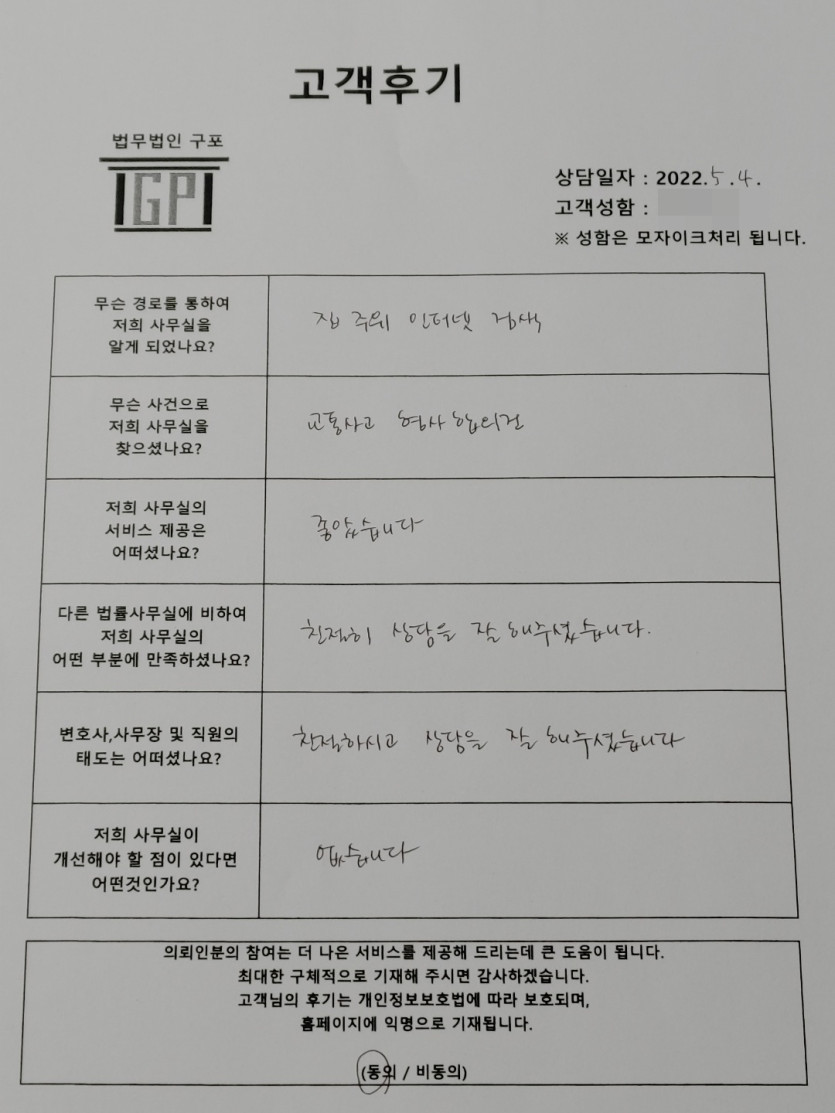 고객후기
법무법인 구포
IGPI
상담일자 : 2022.5.4.
고객성함 :
※ 성함은 모자이크처리 됩니다.
무슨 경로를 통하여
저희 사무실을
알게 되었나요?
집 주위 인터넷 검색
무슨 사건으로
저희 사무실을
찾으셨나요?
교통사고 형사 합의건
저희 사무실의
서비스 제공은
어떠셨나요?
좋았습니다
다른 법률사무실에 비하여
저희 사무실의
어떤 부분에 만족하셨나요?
친절히 상담을 잘 해주셨습니다.
변호사,사무장 및 직원의
태도는 어떠셨나요?
친절하시고 상담을 잘 해주셨습니다
저희 사무실이
개선해야 할 점이 있다면
어떤것인가요?
없습니다
의뢰인분의 참여는 더 나은 서비스를 제공해 드리는데 큰 도움이 됩니다.
최대한 구체적으로 기재해 주시면 감사하겠습니다.
고객님의 후기는 개인정보보호법에 따라 보호되며,
홈페이지에 익명으로 기재됩니다.
(동의 / 비동의)